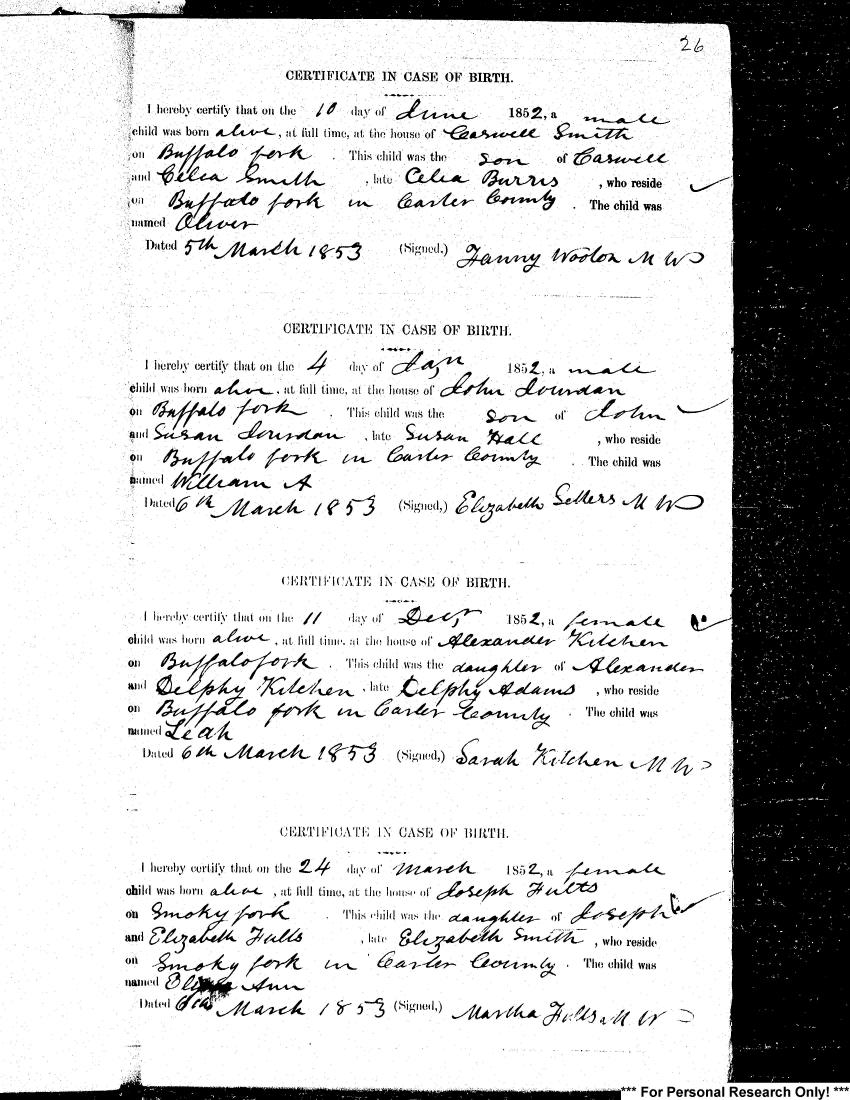 26
CERTIFICATE IN CASE OF BIRTH.
I hereby certify that on the 10 day of June 1852, a male
child was born alive, at full time, at the house of Caswell Smith
on Buffalo fork . This child was the son of Caswell
and Celia Smith , late Celia Burris , who reside
on Buffalo fork in Carter County . The child was
named Oliver
Dated 5th March 1853 (Signed,) Fanny Wooton M W
CERTIFICATE IN CASE OF BIRTH.
I hereby certify that on the 4 day of Jan 1852, a male
child was born alive, at full time, at the house of John Jourdan
on Buffalo fork . This child was the son of John
and Susan Jourdan , late Susan Hall , who reside
on Buffalo fork in Carter County . The child was
named William A
Dated 6th March 1853 (Signed,) Elizabeth Sellers M W
CERTIFICATE IN CASE OF BIRTH.
I hereby certify that on the 11 day of Decr 1852, a female
child was born alive, at full time, at the house of Alexander Kitchen
on Buffalo fork . This child was the daughter of Alexander
and Delphy Kitchen , late Delphy Adams , who reside
on Buffalo fork in Carter County . The child was
named Leah
Dated 6th March 1853 (Signed,) Sarah Kitchen M W
CERTIFICATE IN CASE OF BIRTH.
I hereby certify that on the 24 day of March 1852, a female
child was born alive, at full time, at the house of Joseph Fults
on Smoky fork . This child was the daughter of Joseph
and Elizabeth Fults , late Elizabeth Smith , who reside
on Smoky fork in Carter County . The child was
named Ann
Dated 6th March 1853 (Signed,) Martha Fults M W
*** For Personal Research Only! ***